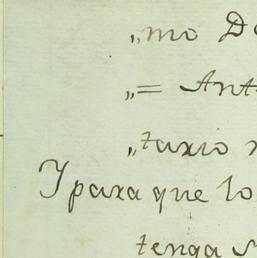 „mo D
„= Ant
„tario
Ypara que lo
tenga